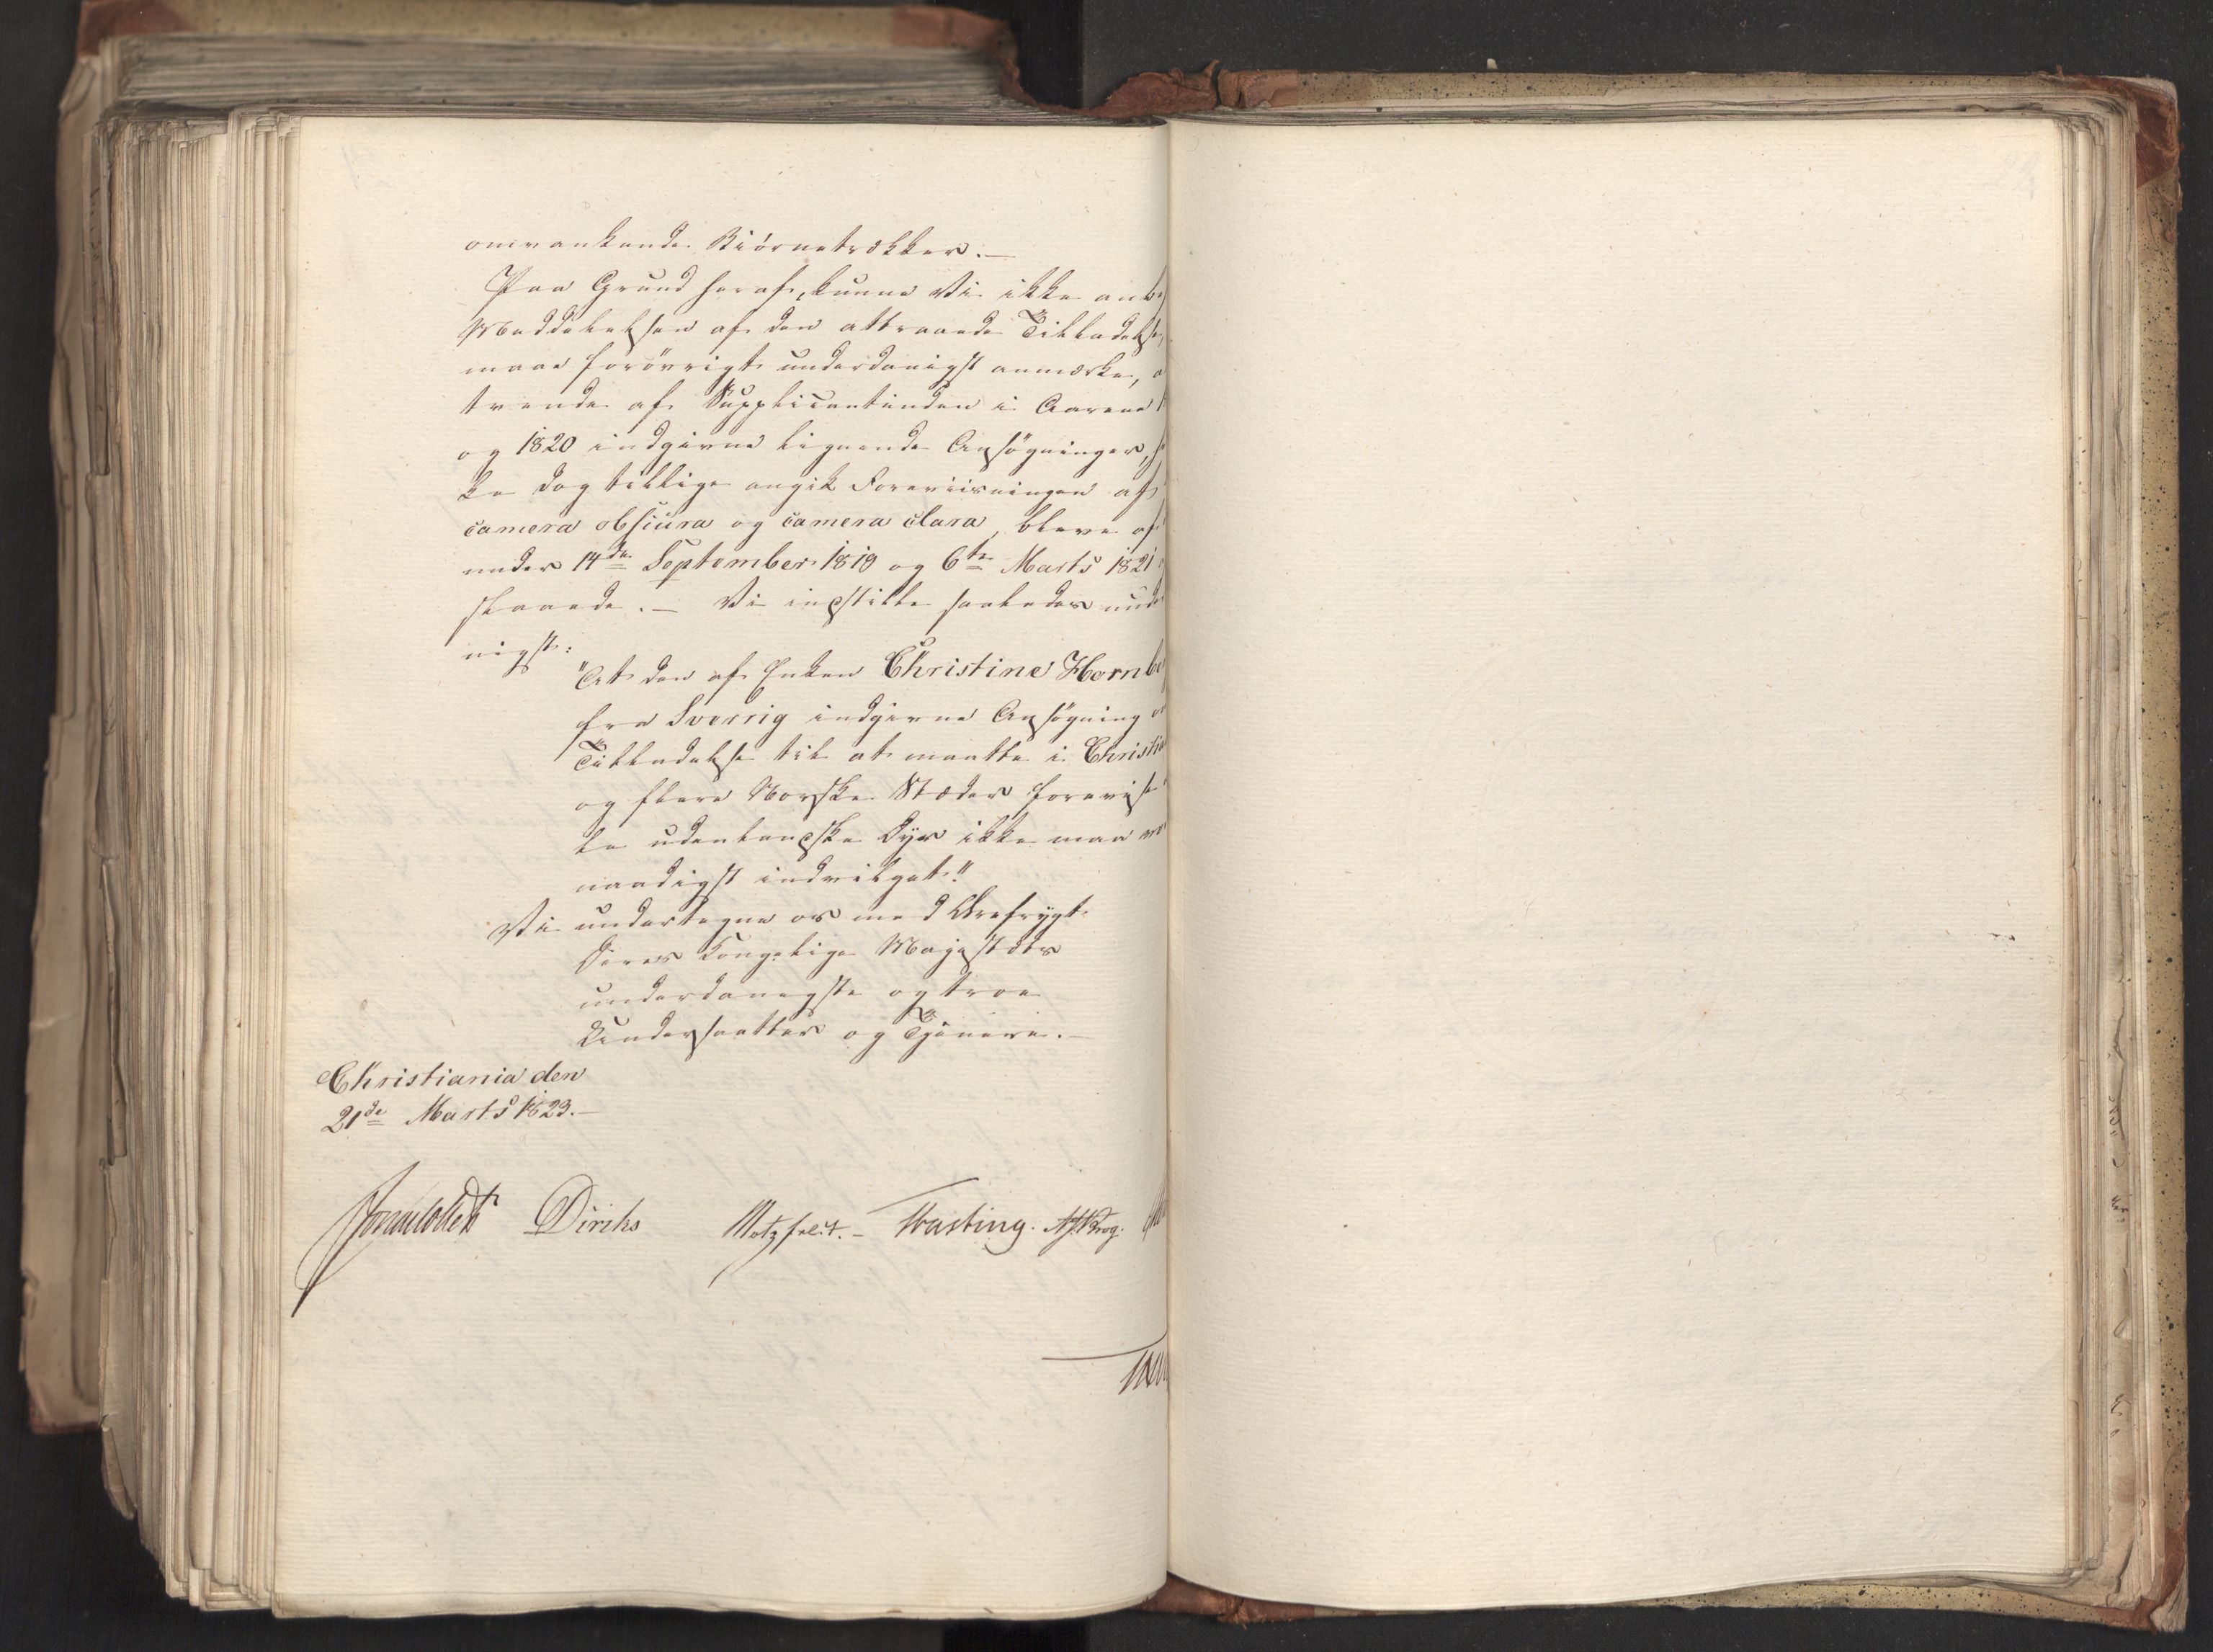 omvankende Biörnetrækker.—
Paa Grund heraf, kunne Vi ikke anbe
Meddelelsen af den attraaede Tilladelse,
maae forövrigt underdanigst anmærke, a
trende af Supplicantinden i Aarene 1
og 1820 indgivne lignende Ansögninger, h
ke dog tillige angik Foreviisningen af
camera obscura og camera clara, bleve af
under 14de September 1819 og 6te Marts 1821
slaaede.— Vi indstille saaledes unde
nigst:
"At den af Enken Christine Hornbe
fra Sverrig indgivne Ansögning o
Tilladelse til at maatte i Christia
og flere Norske Stæder forevise
le udenlandske Dyr ikke maa vor
naadigst indvilget."
Vi undertegne os med Ærefrygt
Deres Kongelige Majestæts
underdanigste og troe
Undersaatter og Tjenere.—
Christiania den
21de Marts 1823.—
Diriks Motzfeldt.— Fasting. Krog.